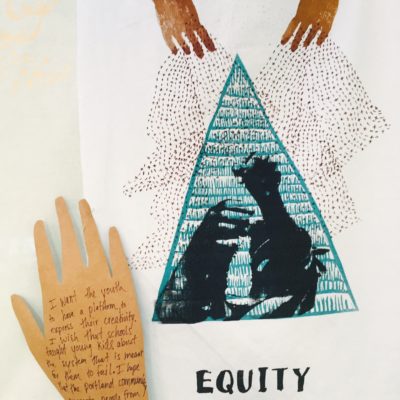 I want the youth
to have a platform to
express their creativity.
I wish that schools
taught young kids about
the system that is meant
for them to fail. I hope
that the portland community
people from
EQUITY